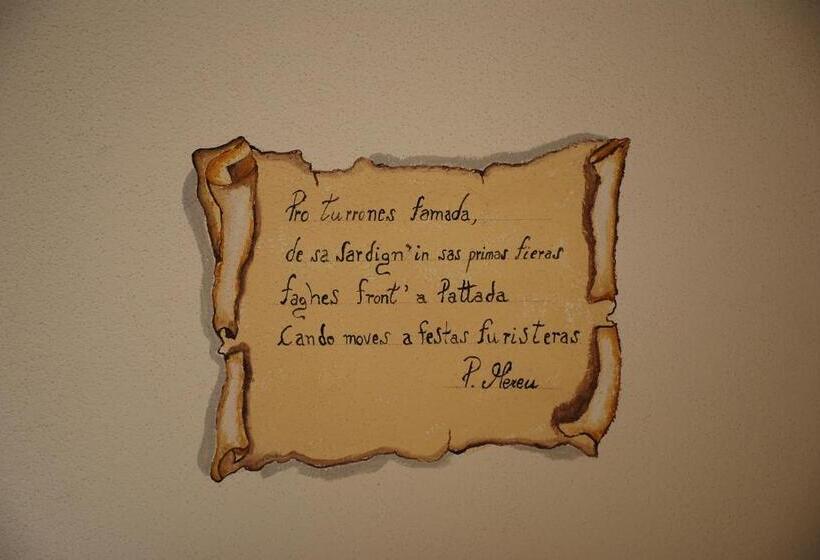 Pro turrones famada,
de sa Sardign' in sas primas fieras
faghes front' a Pattada
Cando moves a festas furisteras
P. Mereu